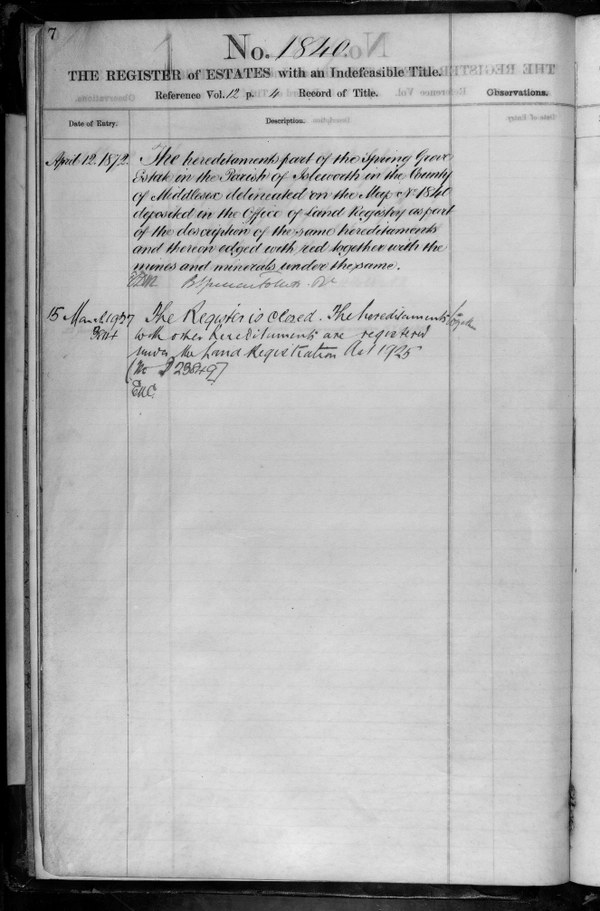 7
No. 1840.
THE REGISTER of ESTATES with an Indefeasible Title.
Reference Vol. 12 p. 4 Record of Title.
Observations.
Date of Entry.
Description.
April 12. 1872.
The hereditaments part of the Spring Grove
Estate in the Parish of Isleworth in the County
of Middlesex delineated on the Map No 1840
deposited in the Office of Land Registry as part
of the description of the same hereditaments
and thereon edged with red together with the
mines and minerals under the same.
15 March 1937
The Register is closed. The hereditaments together
with other hereditaments are registered
under the Land Registration Act 1925